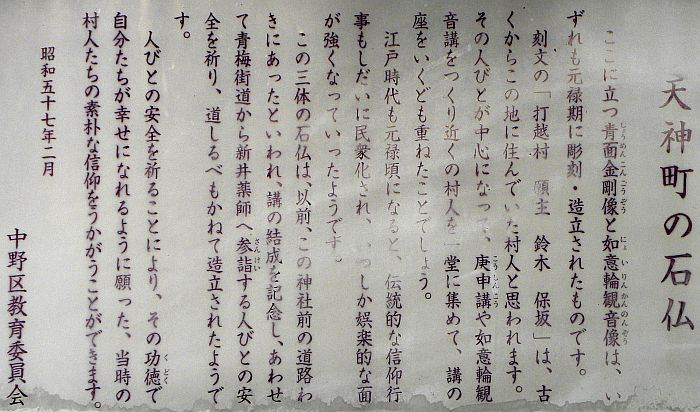 天神町の石仏
ここに立つ青面金剛像と如意輪観音像は、い
ずれも元禄期に彫刻・造立されたものです。
刻文の「打越村 願主 鈴木 保坂」は、古
くからこの地に住んでいた村人と思われます。
その人びとが中心になって、庚申講や如意輪観
音講をつくり近くの村人を一堂に集めて、講の
座をいくども重ねたことでしょう。
江戸時代も元禄頃になると、伝統的な信仰行
事もしだいに民衆化され、いつしか娯楽的な面
が強くなっていったようです。
この三体の石仏は、以前、この神社前の道路わ
きにあったといわれ、講の結成を記念し、あわせ
て青梅街道から新井薬師へ参詣する人びとの安
全を祈り、道しるべもかねて造立されたようで
す。
人びとの安全を祈ることにより、その功徳で
自分たちが幸せになれるように願った、当時の
村人たちの素朴な信仰をうかがうことができます。
昭和五十七年二月
中野区教育委員会